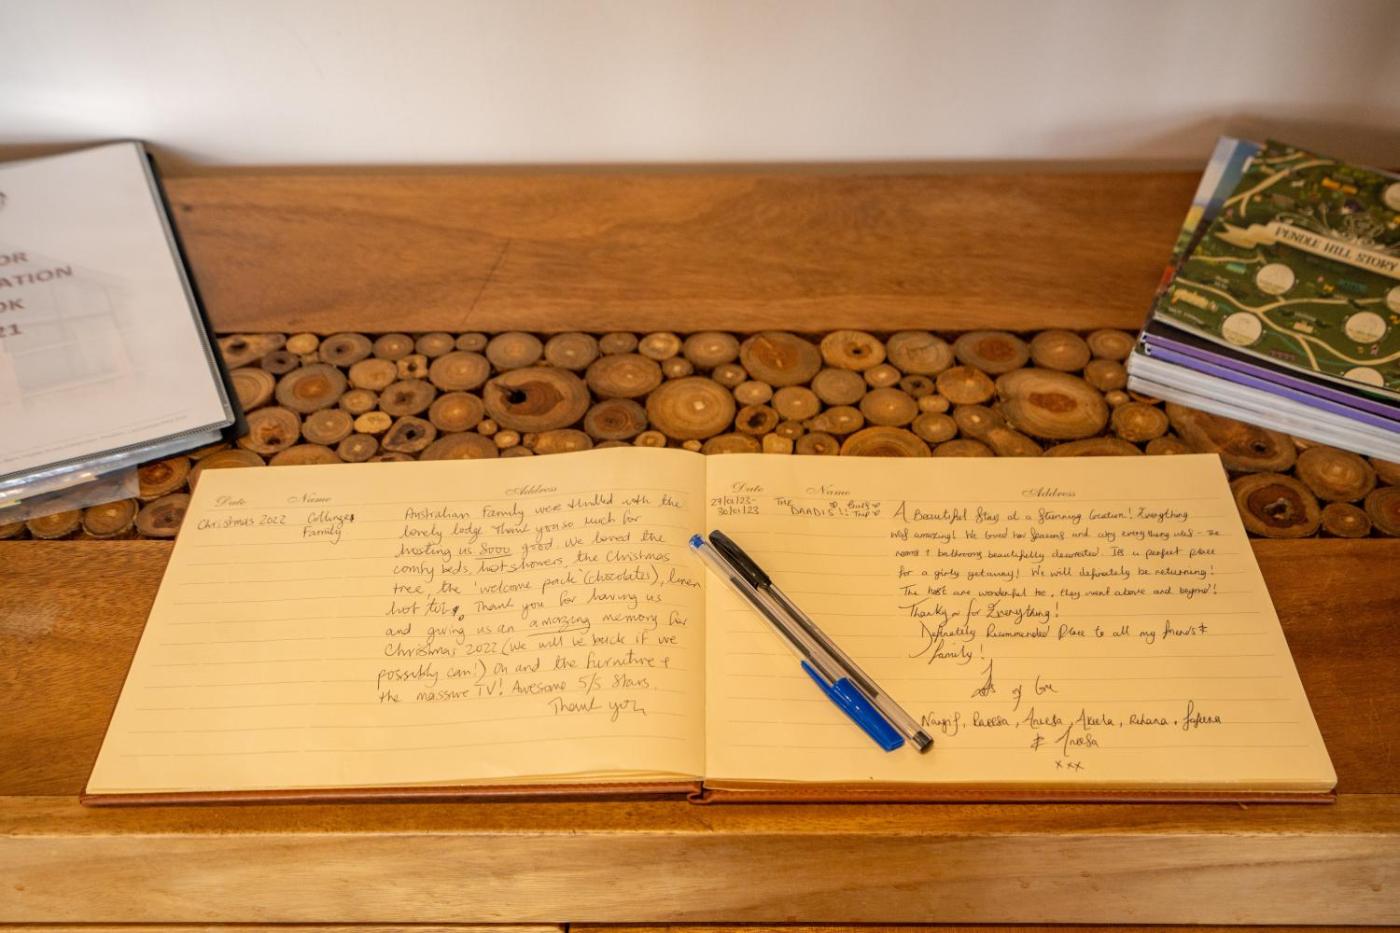 OR
ATION
OK
21
PENDLE HILL STORY
Date Name Address
Christmas 2022 Collinge
Family
Australian Family were thrilled with the
lovely lodge. Thank you so much for
hosting us Sooo good. We loved the
comfy beds, hot showers, the Christmas
tree, the 'welcome pack' (chocolates), linen
hot tub. Thank you for having us
and giving us an amazing memory for
Christmas 2022 (We will be back if we
possibly can!) Oh and the furniture +
the massive TV! Awesome 5/5 Stars.
Thank you
Date Name Address
27/01/23-
30/01/23
THE
DAADIS
Girls
Trip
A Beautiful Stay at a Stunning location! Everything
was amazing! We loved how and cosy everything was - the
rooms + bathrooms beautifully decorated. Its a perfect place
for a girly getaway! We will definately be returning!
The host are wonderful too, they went above and beyond!
Thanku for Everything!
Definitely Recommended Place to all my friends &
family!
of
Raeesa, Aneesa, Akeela, Rihana,
& Aneesa
xxx